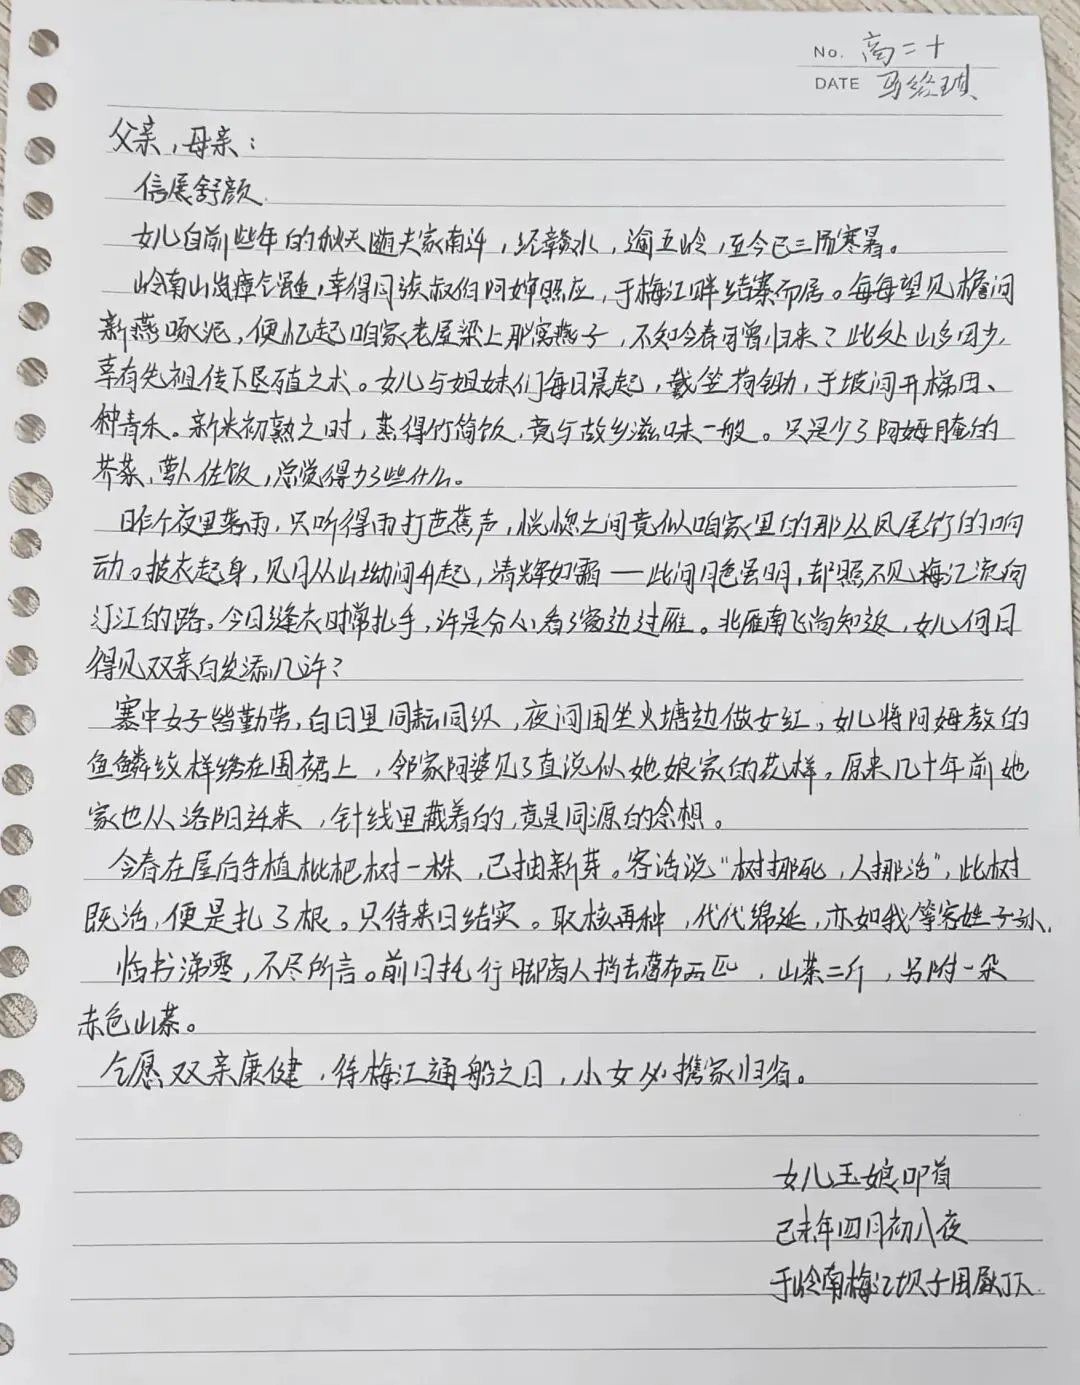 No. 高二十
DATE 马
父亲,母亲:
信展舒颜.
女儿自前些年的秋天随夫家南迁,经赣水,逾五岭,至今已三历寒暑。
岭南山岚瘴气虽重,幸得同族叔伯阿婶照应,于梅江畔结寨而居。每每望见檐间
新燕啄泥,便忆起咱家老屋梁上那窝燕子,不知今春可曾归来?此处山多田少,
幸有先祖传下垦殖之术。女儿与姐妹们每日晨起,戴笠荷锄,于坡间开梯田、
种青禾。新米初熟之时,蒸得竹筒饭,竟与故乡滋味一般。只是少了阿姆腌的
芥菜、萝卜佐饭,总觉得少了些什么。
昨个夜里落雨,只听得雨打芭蕉声,恍惚之间竟似咱家里的那丛凤尾竹的响
动。披衣起身,见月从山坳间升起,清辉如霜——此间月色虽明,却照不见梅江流向
汀江的路。今日缝衣时常扎手,许是分心看了窗边过雁。北雁南飞尚知返,女儿何日
得见双亲白发添几许?
寨中女子皆勤劳,白日里同耘同织,夜间围坐火塘边做女红。女儿将阿姆教的
鱼鳞纹样绣在围裙上,邻家阿婆见了直说似她娘家的花样。原来几十年前她
家也从洛阳迁来,针线里藏着的,竟是同源的念想。
今春在屋后手植枇杷树一株,已抽新芽。客话说“树挪死,人挪活”,此树
既活,便是扎了根。只待来日结实。取核再种,代代绵延,亦如我等客姓子孙.
临书涕零,不尽所言。前日托行脚商人捎去葛布两匹,山茶二斤,另附一朵
赤色山茶。
乞愿双亲康健,待梅江通船之日,小女必携家归省。
女儿玉娘叩首
己未年四月初八夜
于岭南梅江坝子围屋灯下.